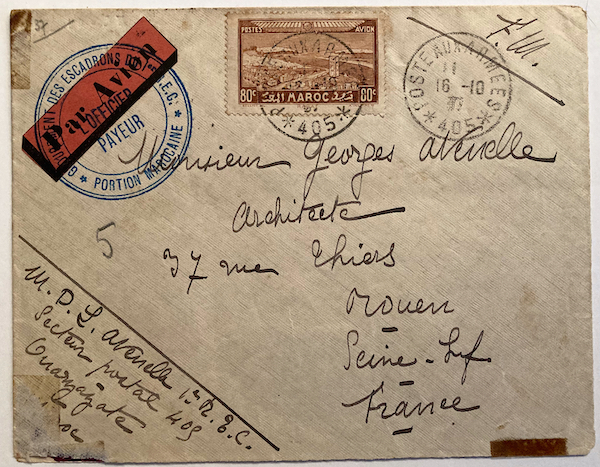 F.M.
POSTES AVION
80c MAROC 80c
405
POSTE AUX ARMEES
16-10
405
Par Avion
DES ESCADRONS DU
L'OFFICIER
PAYEUR
PORTION MAROCAINE
Monsieur Georges Avenelle
Architecte
37 rue Thiers
Rouen
Seine-Inf
France
5
M. P. L. Avenelle 1er R.E.C.
Secteur postal 405
Ouarzazate